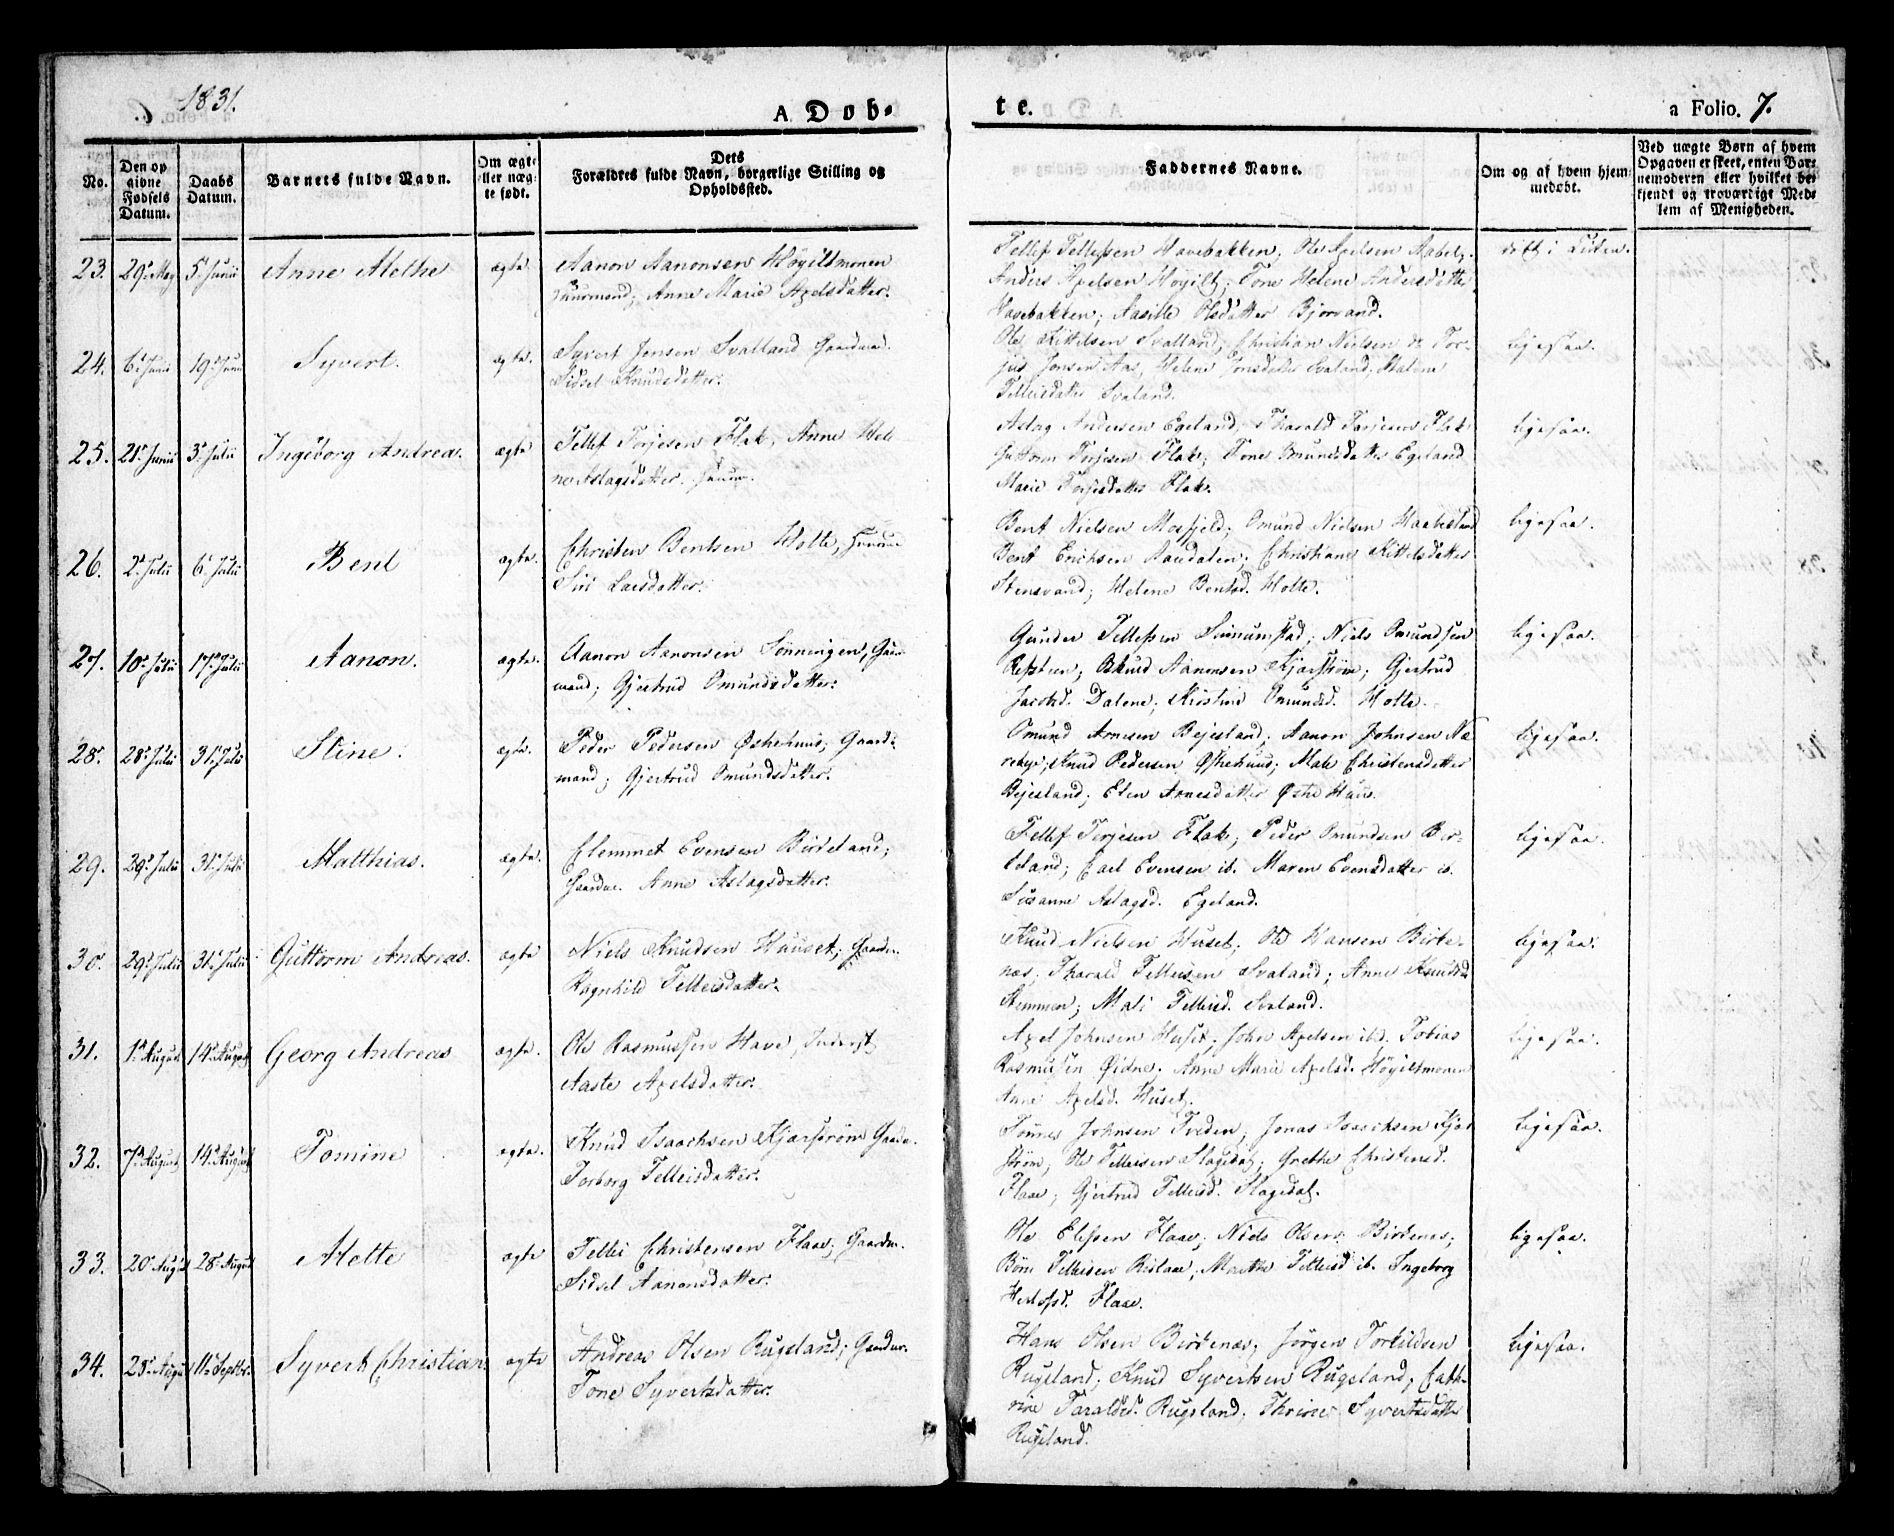 1831.
A Døb-
te.
a Folio. 7.
No.
Den op
givne
Fødsels
Datum.
Daabs
Datum.
Barnets fulde Navn.
Om ægte
eller uæg-
te født.
Dets
Forældres fulde Navn, borgerlige Stilling og
Opholdssted.
Faddernes Navne.
Om og af hvem hjem-
medøbt.
Ved uægte Børn af hvem
Opgaven er skeet, enten Bar-
nemoderen eller hvilket be-
kjendt og troværdigt Med-
lem af Menigheden.
23. 29de May 5te Junii Anne Methe ægte.
Aanon Aanonsen Høyiltmonen
Huusmand; Anne Marie Axelsdatter.
Tellef Tellefsen Havebakken; Ole Axelsen
Anders Axelsen Høyilt; Tone Helene Andersdatter
Havebakken; Aasille Olsdatter Bjorvand.
døbt i Kirken.
24. 6te Junii 19de Junii Syvert. ægte.
Syvert Jensen Svalland Gaardmand.
Sidsel Knudsdatter.
Ole Kittelsen Svalland; Christian Nielsen Tor-
jus Jonsen Aas, Helene Jonsdatter Svaland; Malene
Tellisdatter Svaland.
ligesaa.
25. 21de Junii 3de Julii Ingeborg Andrea. ægte
Tellef Torjesen Flak; Anne Hele
ne Aslagsdatter. Huusm.
Aslag Andersen Egeland; Tharald Torjesen Flak
Guttorm Torjesen Flak; Tone Omundsdatter Egeland
Marie Torjesdatter Flak.
ligesaa.
26. 2de Julii 6te Julii Bent ægte.
Christen Bentsen Holte, Huusm
Siri Larsdatter.
Bent Nielsen Mosfjeld; Omund Nielsen
Bent Erichsen Aaudalen; Christiane Kittelsdatter
Stensvand; Helene Bentsd. Holte.
ligesaa.
27. 10de Julii 17de Julii Aanon. ægte.
Aanon Aanonsen Sønningen, Gaar
mand; Gjertrud Omundsdatter.
Gunder Tellefsen; Niels Omundsen
Aanonsen Kjarstrøm; Gjertrud
Jacobsd. Dalene; Kirstine Omundsd. Holte.
ligesaa.
28. 28de Julii 31te Julii Stine. ægte.
Peder Pedersen Østhehuus; Gaard-
mand; Gjertrud Omundsdatter.
Omund Arnesen Bejesland; Aanon Johnsen Næ
rebye; Knud Pedersen Østhehuus; Male Christensdatter
Bejesland; Elen Arnesdatter Østre Huus.
ligesaa.
29. 29de Julii 31te Julii Matthias. ægte.
Clemmet Evensen Birkeland;
Gaardm. Anne Aslagsdatter.
Tellef Torjesen Flak; Peder Omundsen Bir-
keland; Carl Evensen ib. Maren Evensdatter ib.
Susanne Aslagsd. Egeland.
ligesaa.
30. 29de Julii 31te Julii Guttorm Andreas. ægte
Niels Knudsen Huuset; Gaardm.
Ragnhild Telleisdatter.
Knud Nielsen Huset; Ole Hansen Birke-
næs. Tharald Telleisen Svaland; Anne Knudsd
Stemmen; Mali Telleisd. Svaland.
ligesaa.
31. 1ste August 14de August Georg Andreas ægte.
Ole Rasmussen Have, Inderst
Aaste Axelsdatter.
Axel Johnsen Huset, John Axelsen ibd. Tobias
Rasmusen Øidne. Anne Marie Axelsd. Høyiltmonen
Anne Axelsd. Huset.
ligesaa.
32. 7de August 14de August Tomine ægte.
Knud Isaachsen Kjarstrøm Gaardm.
Torborg Telleisdatter.
Tønnes Johnsen Tveden; Jonas Isaachsen Kjar
strøm; Ole Telleisen Slagedal; Grethe Christensd.
Flaae; Gjertrud Telleisd. Slagedal.
ligesaa.
33. 20de August 28de August Mette ægte
Tellei Christensen Flaae; Gaardm.
Sidsel Aanonsdatter.
Ole Elefsen Flaae; Niels Olsen Birkenes;
Børe Telleisen Rislaae; Marthe Telleisd ib. Ingeborg
Herlofsd. Flaae.
ligesaa.
34. 25de August 11te Septbr. Syvert Christian ægte
Andreas Olsen Rugsland; Gaardm.
Tone Syvertsdatter.
Hans Olsen Birkenæs; Jørgen Torkildsen
Rugsland; Knud Syvertsen Rugsland; Cath-
rine Taraldsd. Rugsland; Thrine Syvertsdatter
Rugsland.
ligesaa.